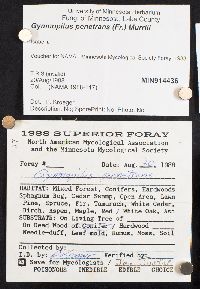 University of Minnesota Herbarium
Fungi of Minnesota, Lake County
Gymnopilus penetrans (Fr.) Murrill
Voucher for NAMA / Minnesota Mycological Society Foray
20/Aug/1988
MIN914436
Det.: Kroeger
Description: No; SporePrint: No; Photo: No
1988 SUPERIOR FORAY
North American Mycological Association
and the Minnesota Mycological Society
Foray # Date: Aug. 20, 1988
Gymnopilus penetrans
HABITAT: Mixed Forest, Conifers, Hardwoods
Sphagnum Bog, Cedar Swamp, Open Area, Lawn
Pine, Spruce, Fir, Tamarack, White Cedar,
Birch, Aspen, Maple, Red / White Oak, Ash
SUBSTRATE: On Living Tree of
On Dead Wood of Conifer / Hardwood
Needle-duff, Leaf mold, Humus, Moss, Soil
Collected by:
I.D. by: Kroeger Verified by:
Save for Mycologists /
POISONOUS INEDIBLE EDIBLE CHOICE